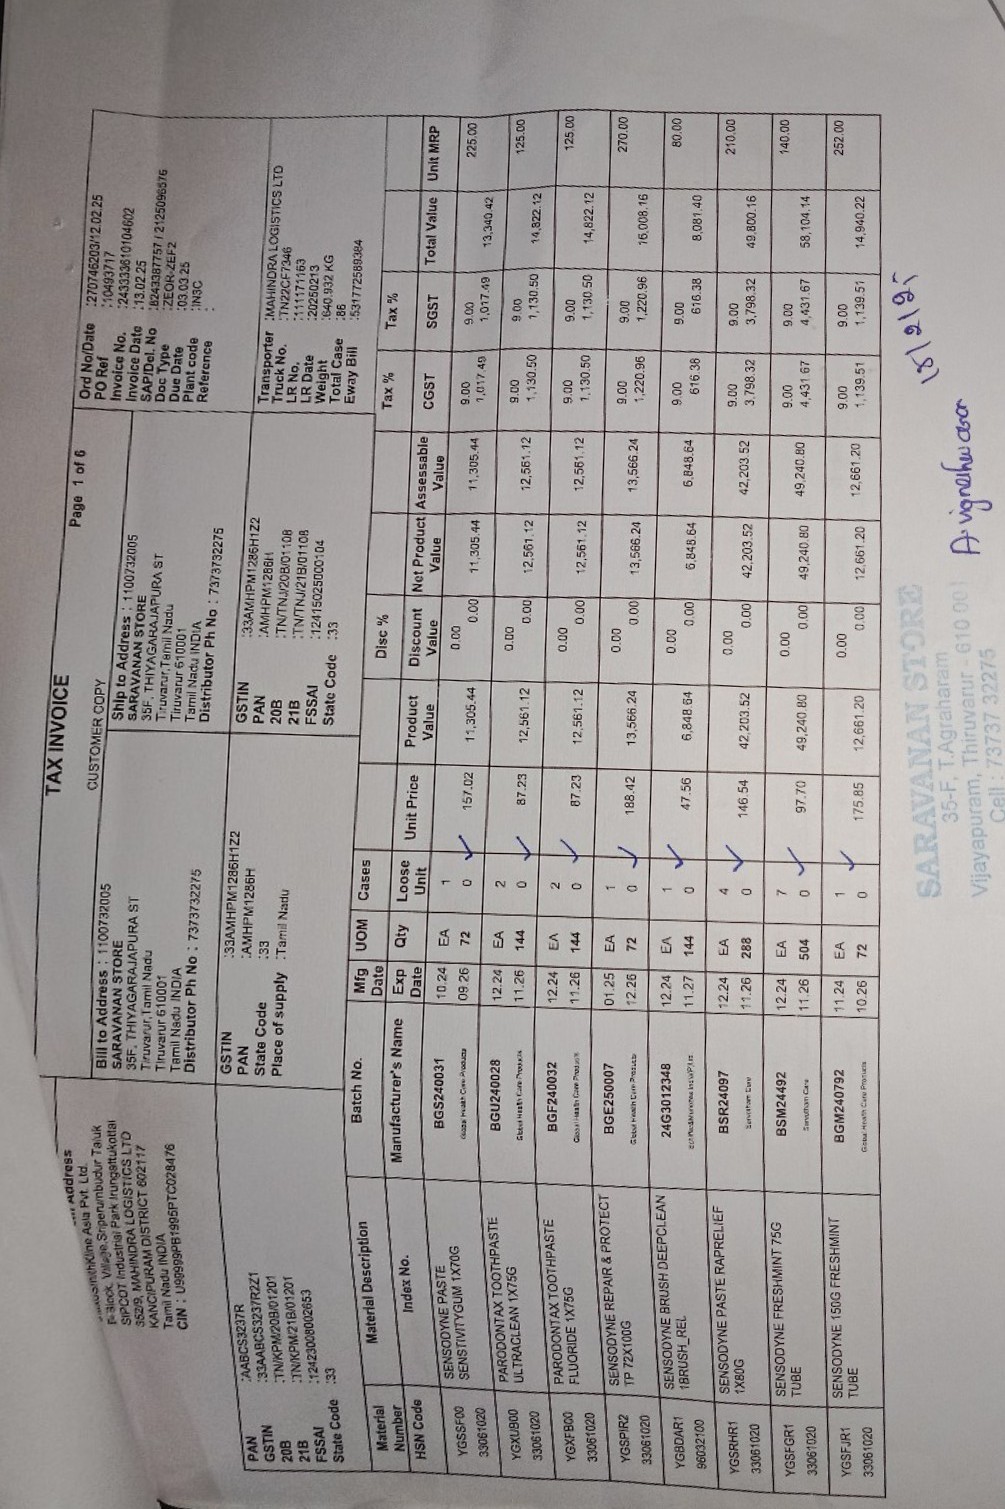 TAX INVOICE
CUSTOMER COPY
Page 1 of 6
Address
Asia Pvt. Ltd.
Village,Sriperumbudur Taluk
SIPCOT Industrial Park Irungattukottai
MAHINDRA LOGISTICS LTD
KANCIPURAM DISTRICT 602117
Tamil Nadu INDIA
CIN : U99999PB1995PTC028476
Bill to Address : 1100732005
SARAVANAN STORE
35F, THIYAGARAJAPURA ST
Tiruvarur,Tamil Nadu
Tiruvarur 610001
Tamil Nadu INDIA
Distributor Ph No : 7373732275
Ship to Address : 1100732005
SARAVANAN STORE
35F, THIYAGARAJAPURA ST
Tiruvarur,Tamil Nadu
Tiruvarur 610001
Tamil Nadu INDIA
Distributor Ph No : 7373732275
Ord No/Date :270746203/12.02.25
PO Ref :10493717
Invoice No. :243333610104602
Invoice Date :13.02.25
SAP/Del. No :8243387757 / 2125096576
Doc Type :ZEOR-ZEF2
Due Date :03.03.25
Plant code :IN3C
Reference :
PAN :AABCS3237R
GSTIN :33AABCS3237R2Z1
20B :TN/KPM/20B/01201
21B :TN/KPM/21B/01201
FSSAI :12423008002653
State Code :33
GSTIN :33AMHPM1286H1Z2
PAN :AMHPM1286H
State Code :33
Place of supply :Tamil Nadu
GSTIN :33AMHPM1286H1Z2
PAN :AMHPM1286H
20B :TN/TNJ/20B/01108
21B :TN/TNJ/21B/01108
FSSAI :12415025000104
State Code :33
Transporter :MAHINDRA LOGISTICS LTD
Truck No. :TN22CF7346
LR No. :111171163
LR Date :20250213
Weight :640.932 KG
Total Case :86
Eway Bill :531772589384
Material Number Material Description Batch No. Mfg Date UOM Cases Disc % Tax % Tax %
HSN Code Index No. Manufacturer's Name Exp Date Qty Loose Unit Unit Price Product Value Discount Value Net Product Value Assessable Value CGST SGST Total Value Unit MRP
YGSSF00 SENSODYNE PASTE BGS240031 10.24 EA 1 0.00 9.00 9.00
33061020 SENSTIVITYGUM 1X70G Global Health Care Products 09.26 72 0 157.02 11,305.44 0.00 11,305.44 11,305.44 1,017.49 1,017.49 13,340.42 225.00
YGXUB00 PARODONTAX TOOTHPASTE BGU240028 12.24 EA 2 0.00 9.00 9.00
33061020 ULTRACLEAN 1X75G Global Health Care Products 11.26 144 0 87.23 12,561.12 0.00 12,561.12 12,561.12 1,130.50 1,130.50 14,822.12 125.00
YGXFB00 PARODONTAX TOOTHPASTE BGF240032 12.24 EA 2 0.00 9.00 9.00
33061020 FLUORIDE 1X75G Global Health Care Products 11.26 144 0 87.23 12,561.12 0.00 12,561.12 12,561.12 1,130.50 1,130.50 14,822.12 125.00
YGSPIR2 SENSODYNE REPAIR & PROTECT BGE250007 01.25 EA 1 0.00 9.00 9.00
33061020 TP 72X100G Global Health Care Products 12.26 72 0 188.42 13,566.24 0.00 13,566.24 13,566.24 1,220.96 1,220.96 16,008.16 270.00
YGBDAR1 SENSODYNE BRUSH DEEPCLEAN 24G3012348 12.24 EA 1 0.00 9.00 9.00
96032100 1BRUSH_REL 11.27 144 0 47.56 6,848.64 0.00 6,848.64 6,848.64 616.38 616.38 8,081.40 80.00
YGSRHR1 SENSODYNE PASTE RAPRELIEF BSR24097 12.24 EA 4 0.00 9.00 9.00
33061020 1X80G 11.26 288 0 146.54 42,203.52 0.00 42,203.52 42,203.52 3,798.32 3,798.32 49,800.16 210.00
YGSFGR1 SENSODYNE FRESHMINT 75G BSM24492 12.24 EA 7 0.00 9.00 9.00
33061020 TUBE 11.26 504 0 97.70 49,240.80 0.00 49,240.80 49,240.80 4,431.67 4,431.67 58,104.14 140.00
YGSFJR1 SENSODYNE 150G FRESHMINT BGM240792 11.24 EA 1 0.00 9.00 9.00
33061020 TUBE Global Health Care Products 10.26 72 0 175.85 12,661.20 0.00 12,661.20 12,661.20 1,139.51 1,139.51 14,940.22 252.00
SARAVANAN STORE
35-F, T.Agraharam
Vijayapuram, Thiruvarur - 610 001
Cell : 73737 32275
A.vigneshwaran